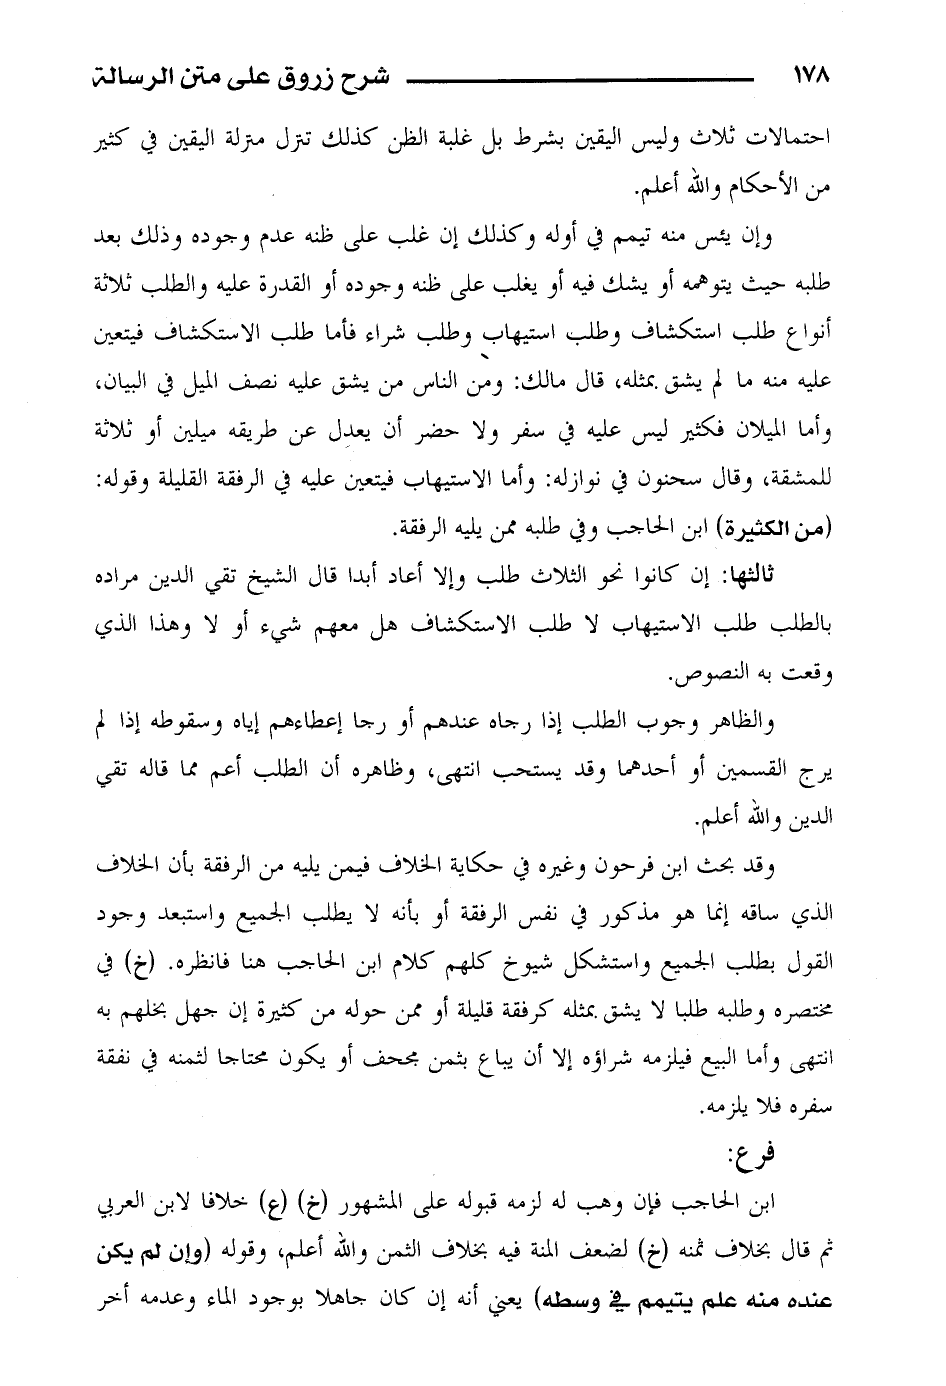 ١٧٨ شرح زروق على متن الرسالة
احتمالات ثلاث وليس اليقين بشرط بل غلبة الظن كذلك تنزل منزلة اليقين في كثير
من الأحكام والله أعلم.
وإن يئس منه تيمم في أوله وكذلك إن غلب على ظنه عدم وجوده وذلك بعد
طلبه حيث يتوهمه أو يشك فيه أو يغلب على ظنه وجوده أو القدرة عليه والطلب ثلاثة
أنواع طلب استكشاف وطلب استيهاب وطلب شراء فأما طلب الاستكشاف فيتعين
عليه منه ما لم يشق بمثله، قال مالك: ومن الناس من يشق عليه نصف الميل في البيان،
وأما الميلان فكثير ليس عليه في سفر ولا حضر أن يعدل عن طريقه ميلين أو ثلاثة
للمشقة، وقال سحنون في نوازله: وأما الاستيهاب فيتعين عليه في الرفقة القليلة وقوله:
(من الكثيرة) ابن الحاجب وفي طلبه ممن يليه الرفقة.
ثالثها: إن كانوا نحو الثلاث طلب وإلا أعاد أبدا قال الشيخ تقي الدين مراده
بالطلب طلب الاستيهاب لا طلب الاستكشاف هل معهم شيء أو لا وهذا الذي
وقعت به النصوص.
والظاهر وجوب الطلب إذا رجاه عندهم أو رجا إعطاءهم إياه وسقوطه إذا لم
يرج القسمين أو أحدهما وقد يستحب انتهى، وظاهره أن الطلب أعم مما قاله تقي
الدين والله أعلم.
وقد بحث ابن فرحون وغيره في حكاية الخلاف فيمن يليه من الرفقة بأن الخلاف
الذي ساقه إنما هو مذكور في نفس الرفقة أو بأنه لا يطلب الجميع واستبعد وجود
القول بطلب الجميع واستشكل شيوخ كلهم كلام ابن الحاجب هنا فانظره. (خ) في
مختصره وطلبه طلبا لا يشق بمثله كرفقة قليلة أو ممن حوله من كثيرة إن جهل بخلهم به
انتهى وأما البيع فيلزمه شراؤه إلا أن يباع بثمن مجحف أو يكون محتاجا لثمنه في نفقة
سفره فلا يلزمه.
فرع:
ابن الحاجب فإن وهب له لزمه قبوله على المشهور (خ) (ع) خلافا لابن العربي
ثم قال بخلاف ثمنه (خ) لضعف المنة فيه بخلاف الثمن والله أعلم، وقوله (وإن لم يكن
عنده منه علم يتيمم في وسطه) يعني أنه إن كان جاهلا بوجود الماء وعدمه أخر